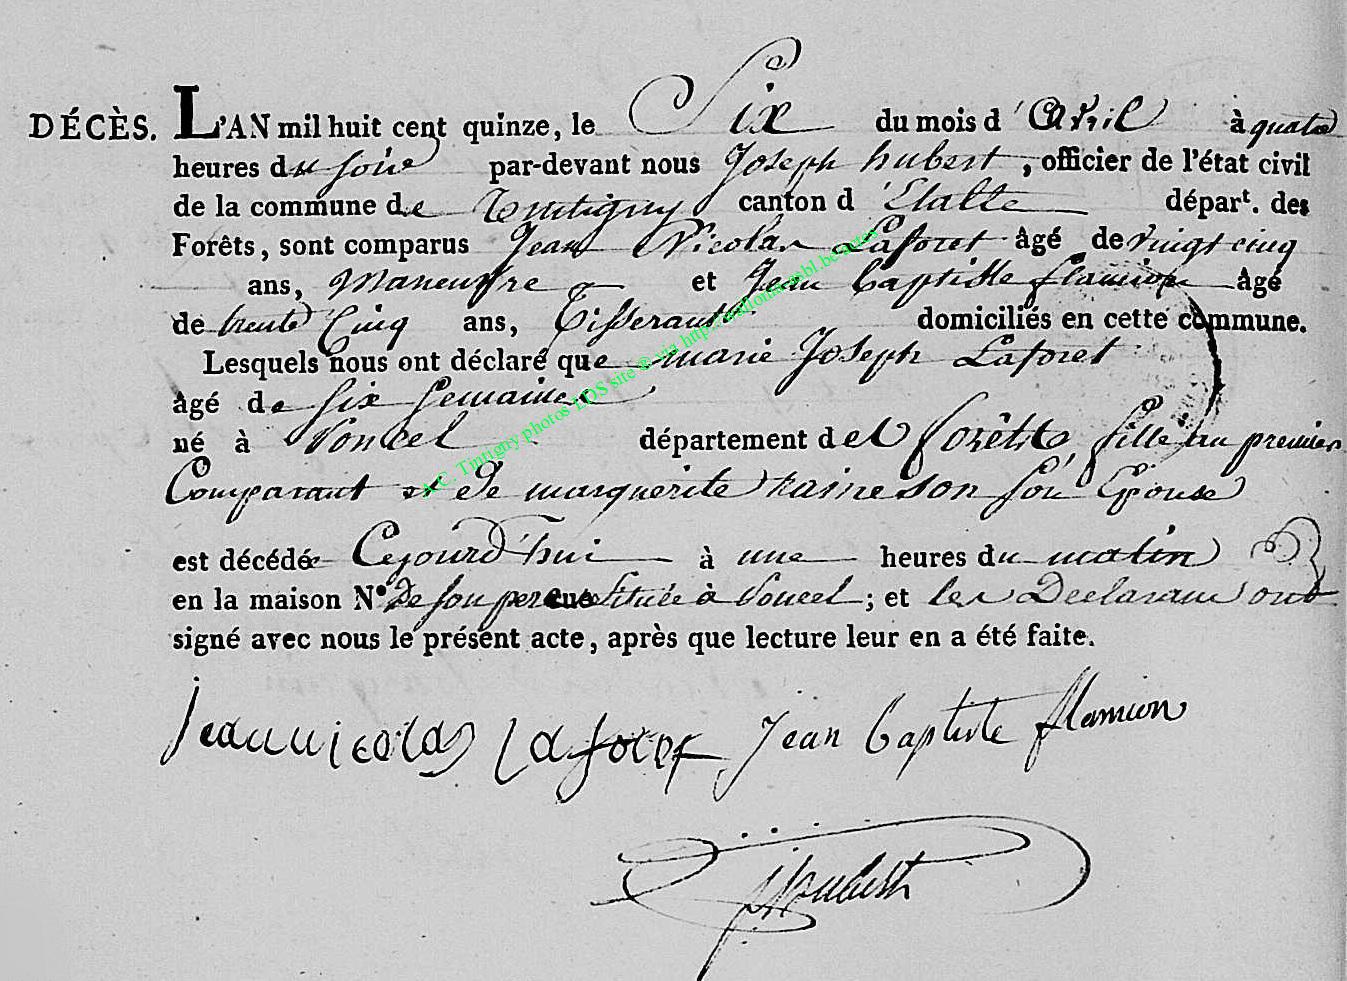 DÉCÈS. L'AN mil huit cent quinze, le Six du mois d'Avril à quatre
heures du soir par-devant nous Joseph hubert, officier de l'état civil
de la commune de Tintigny canton d'Etalle départ. des
Forêts, sont comparus Jean Nicolas Laforet âgé de vingt cinq
ans, Maneuvre et Jean baptiste flamion âgé
de trente Cinq ans, Tisserant domiciliés en cette commune.
Lesquels nous ont déclaré que marie Joseph Laforet
âgé de six semaines
né à Poncel département des forêts, fille au premier
Comparant et de marguerite son Epouse
est décédée Cejourd'hui à une heures du matin
en la maison N° de son pere située à Poncel; et les Declarans ont
signé avec nous le présent acte, après que lecture leur en a été faite.
jean nicolas laforet jean baptiste flamion
jhubert
A.C. Tintigny photos LDS site © via http://wallonia.asbl.be/actes